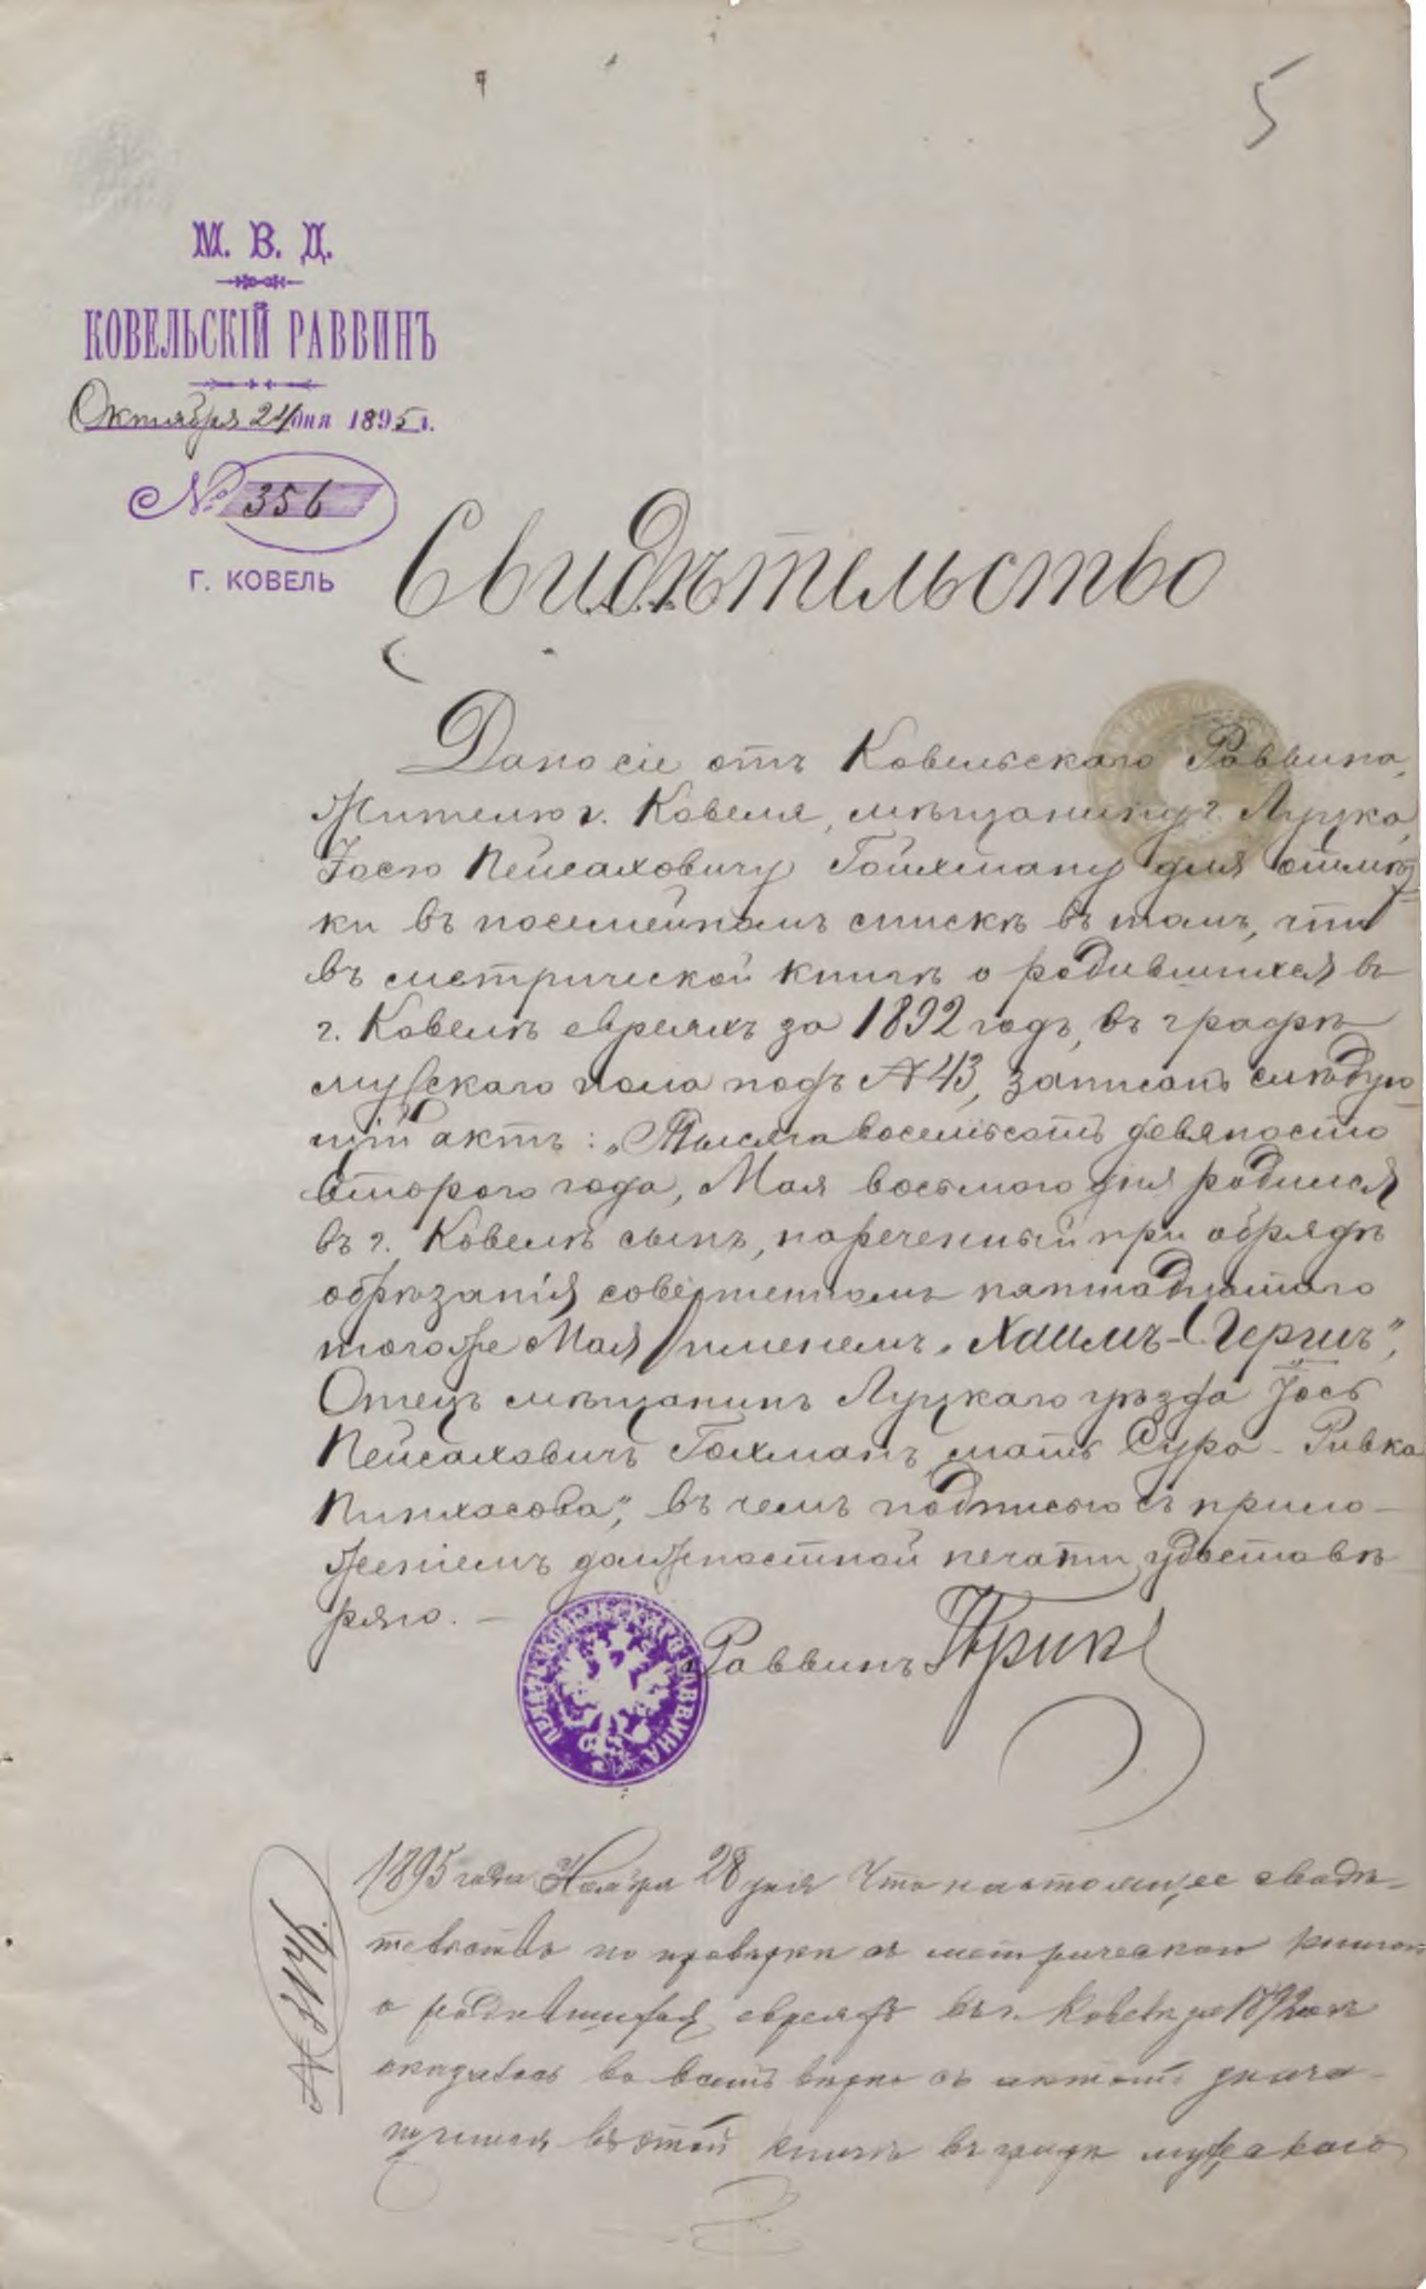 5
М. В. Д.
КОВЕЛЬСКІЙ РАВВИНЪ
Октября 24 дня 1895 г.
№ 356
Г. КОВЕЛЬ
Свидѣтельство
Дано сіе отъ Ковельскаго Раввина,
Жителю г. Ковеля, мѣщанину г. Луцка,
Іосю Пейсаховичу Гойхману для отмѣт-
ки въ посемейномъ спискѣ въ томъ, что
въ метрической книгѣ о родившихся въ
г. Ковелѣ евреяхъ за 1892 годъ, въ графѣ
мужскаго пола подъ № 43, записанъ слѣдую-
щій актъ: „Тысяча восемьсотъ девяносто
втораго года, Мая восьмого дня родился
въ г. Ковелѣ сынъ, нареченный при обрядѣ
обрѣзанія совершенномъ пятнадцатаго
того же Мая именемъ „Хаимъ-Гершъ",
Отецъ мѣщанинъ Луцкаго уѣзда Іось
Пейсаховичъ Гохманъ, мать Сура - Ривка
Пинхасова", въ чемъ подписью съ прило-
женіемъ должностной печати удостовѣ-
ряю. —
Раввинъ
ПЕЧАТЬ КОВЕЛЬСКАГО РАВВИНА
№ 3146.
1895 года Ноября 28 дня Что настоящее свидѣ-
тельство по провѣркѣ съ метрическою книгою
о родившихся евреяхъ въ г. Ковелѣ за 1892 годъ
оказалось во всемъ вѣрно съ актомъ значащимся
въ этой книгѣ въ графѣ мужскаго